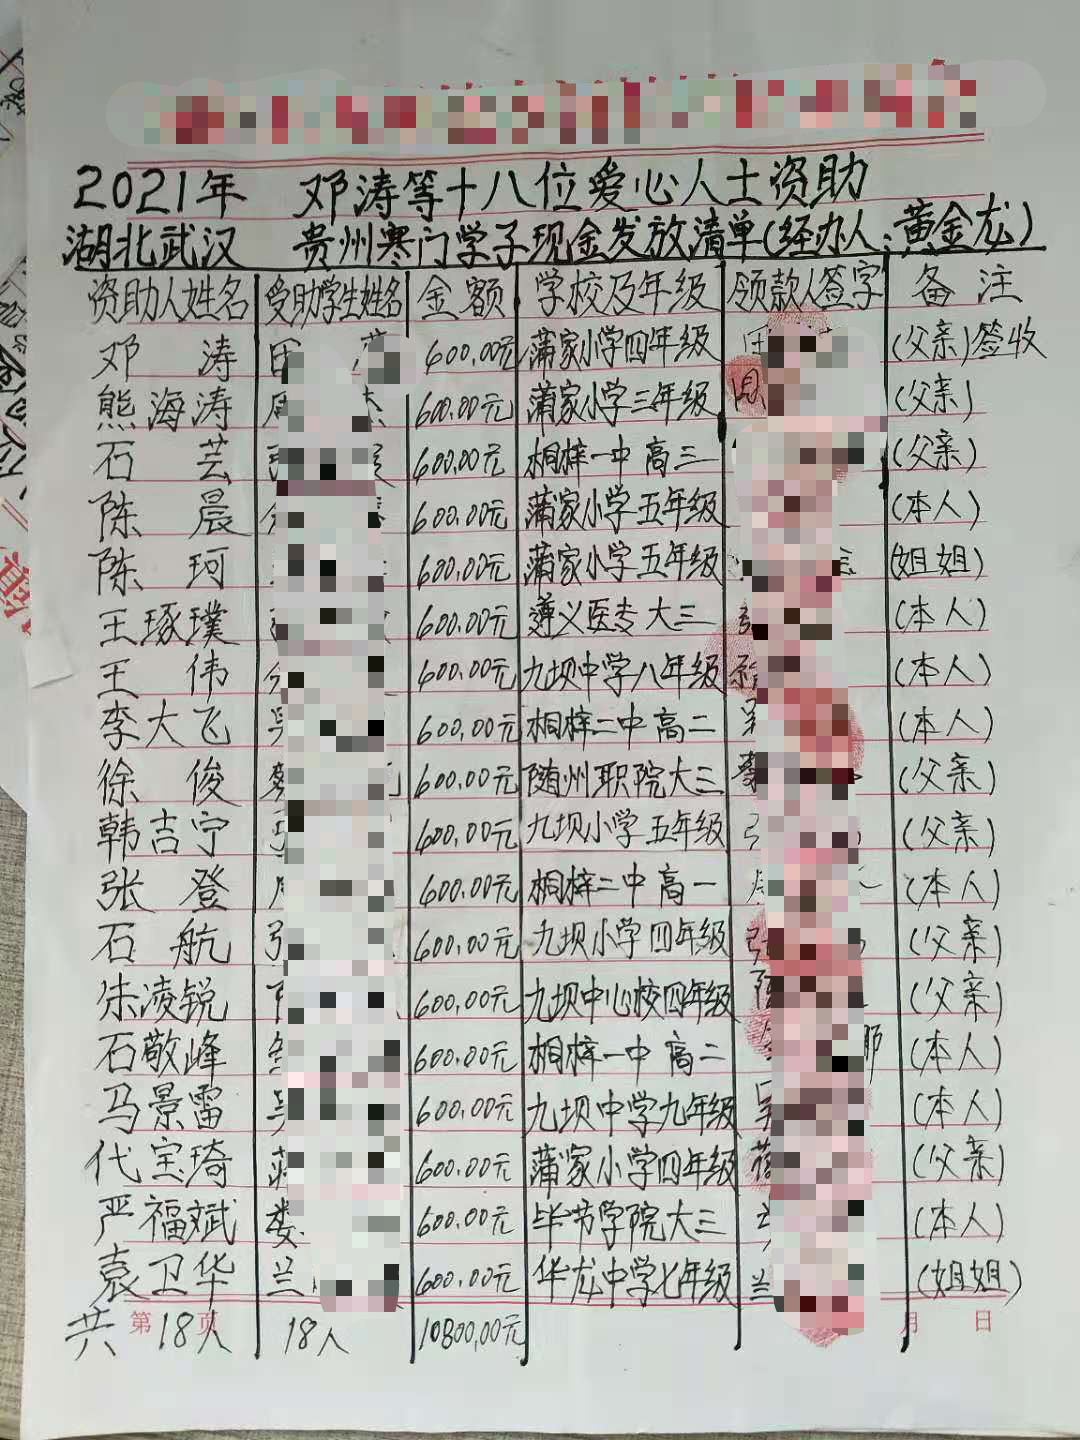 2021年 邓涛等十八位爱心人士资助
湖北武汉 贵州寒门学子现金发放清单(经办人:黄金龙)
资助人姓名 受助学生姓名 金额 学校及年级 领款人签字 备注
邓涛 600.00元 蒲家小学四年级 (父亲)签收
熊海涛 600.00元 蒲家小学三年级 (父亲)
石芸 600.00元 桐梓一中高三 (父亲)
陈晨 600.00元 蒲家小学五年级 (本人)
陈珂 600.00元 蒲家小学五年级 (姐姐)
王琢璞 600.00元 遵义医专大三 (本人)
王伟 600.00元 九坝中学八年级 (本人)
李大飞 吴 600.00元 桐梓二中高二 (本人)
徐俊 600.00元 随州职院大三 (父亲)
韩吉宁 600.00元 九坝小学五年级 (父亲)
张登 600.00元 桐梓二中高一 (本人)
石航 600.00元 九坝小学四年级 张 (父亲)
朱凌锐 600.00元 九坝中心校四年级 (父亲)
石敬峰 600.00元 桐梓一中高二 (本人)
马景雷 吴 600.00元 九坝中学九年级 吴 (本人)
代宝琦 600.00元 蒲家小学四年级 (父亲)
严福斌 娄 600.00元 毕节学院大三 (本人)
袁卫华 兰 600.00元 华龙中学七年级 兰 (姐姐)
第 页 月 日
共 18人 18人 10800.00元